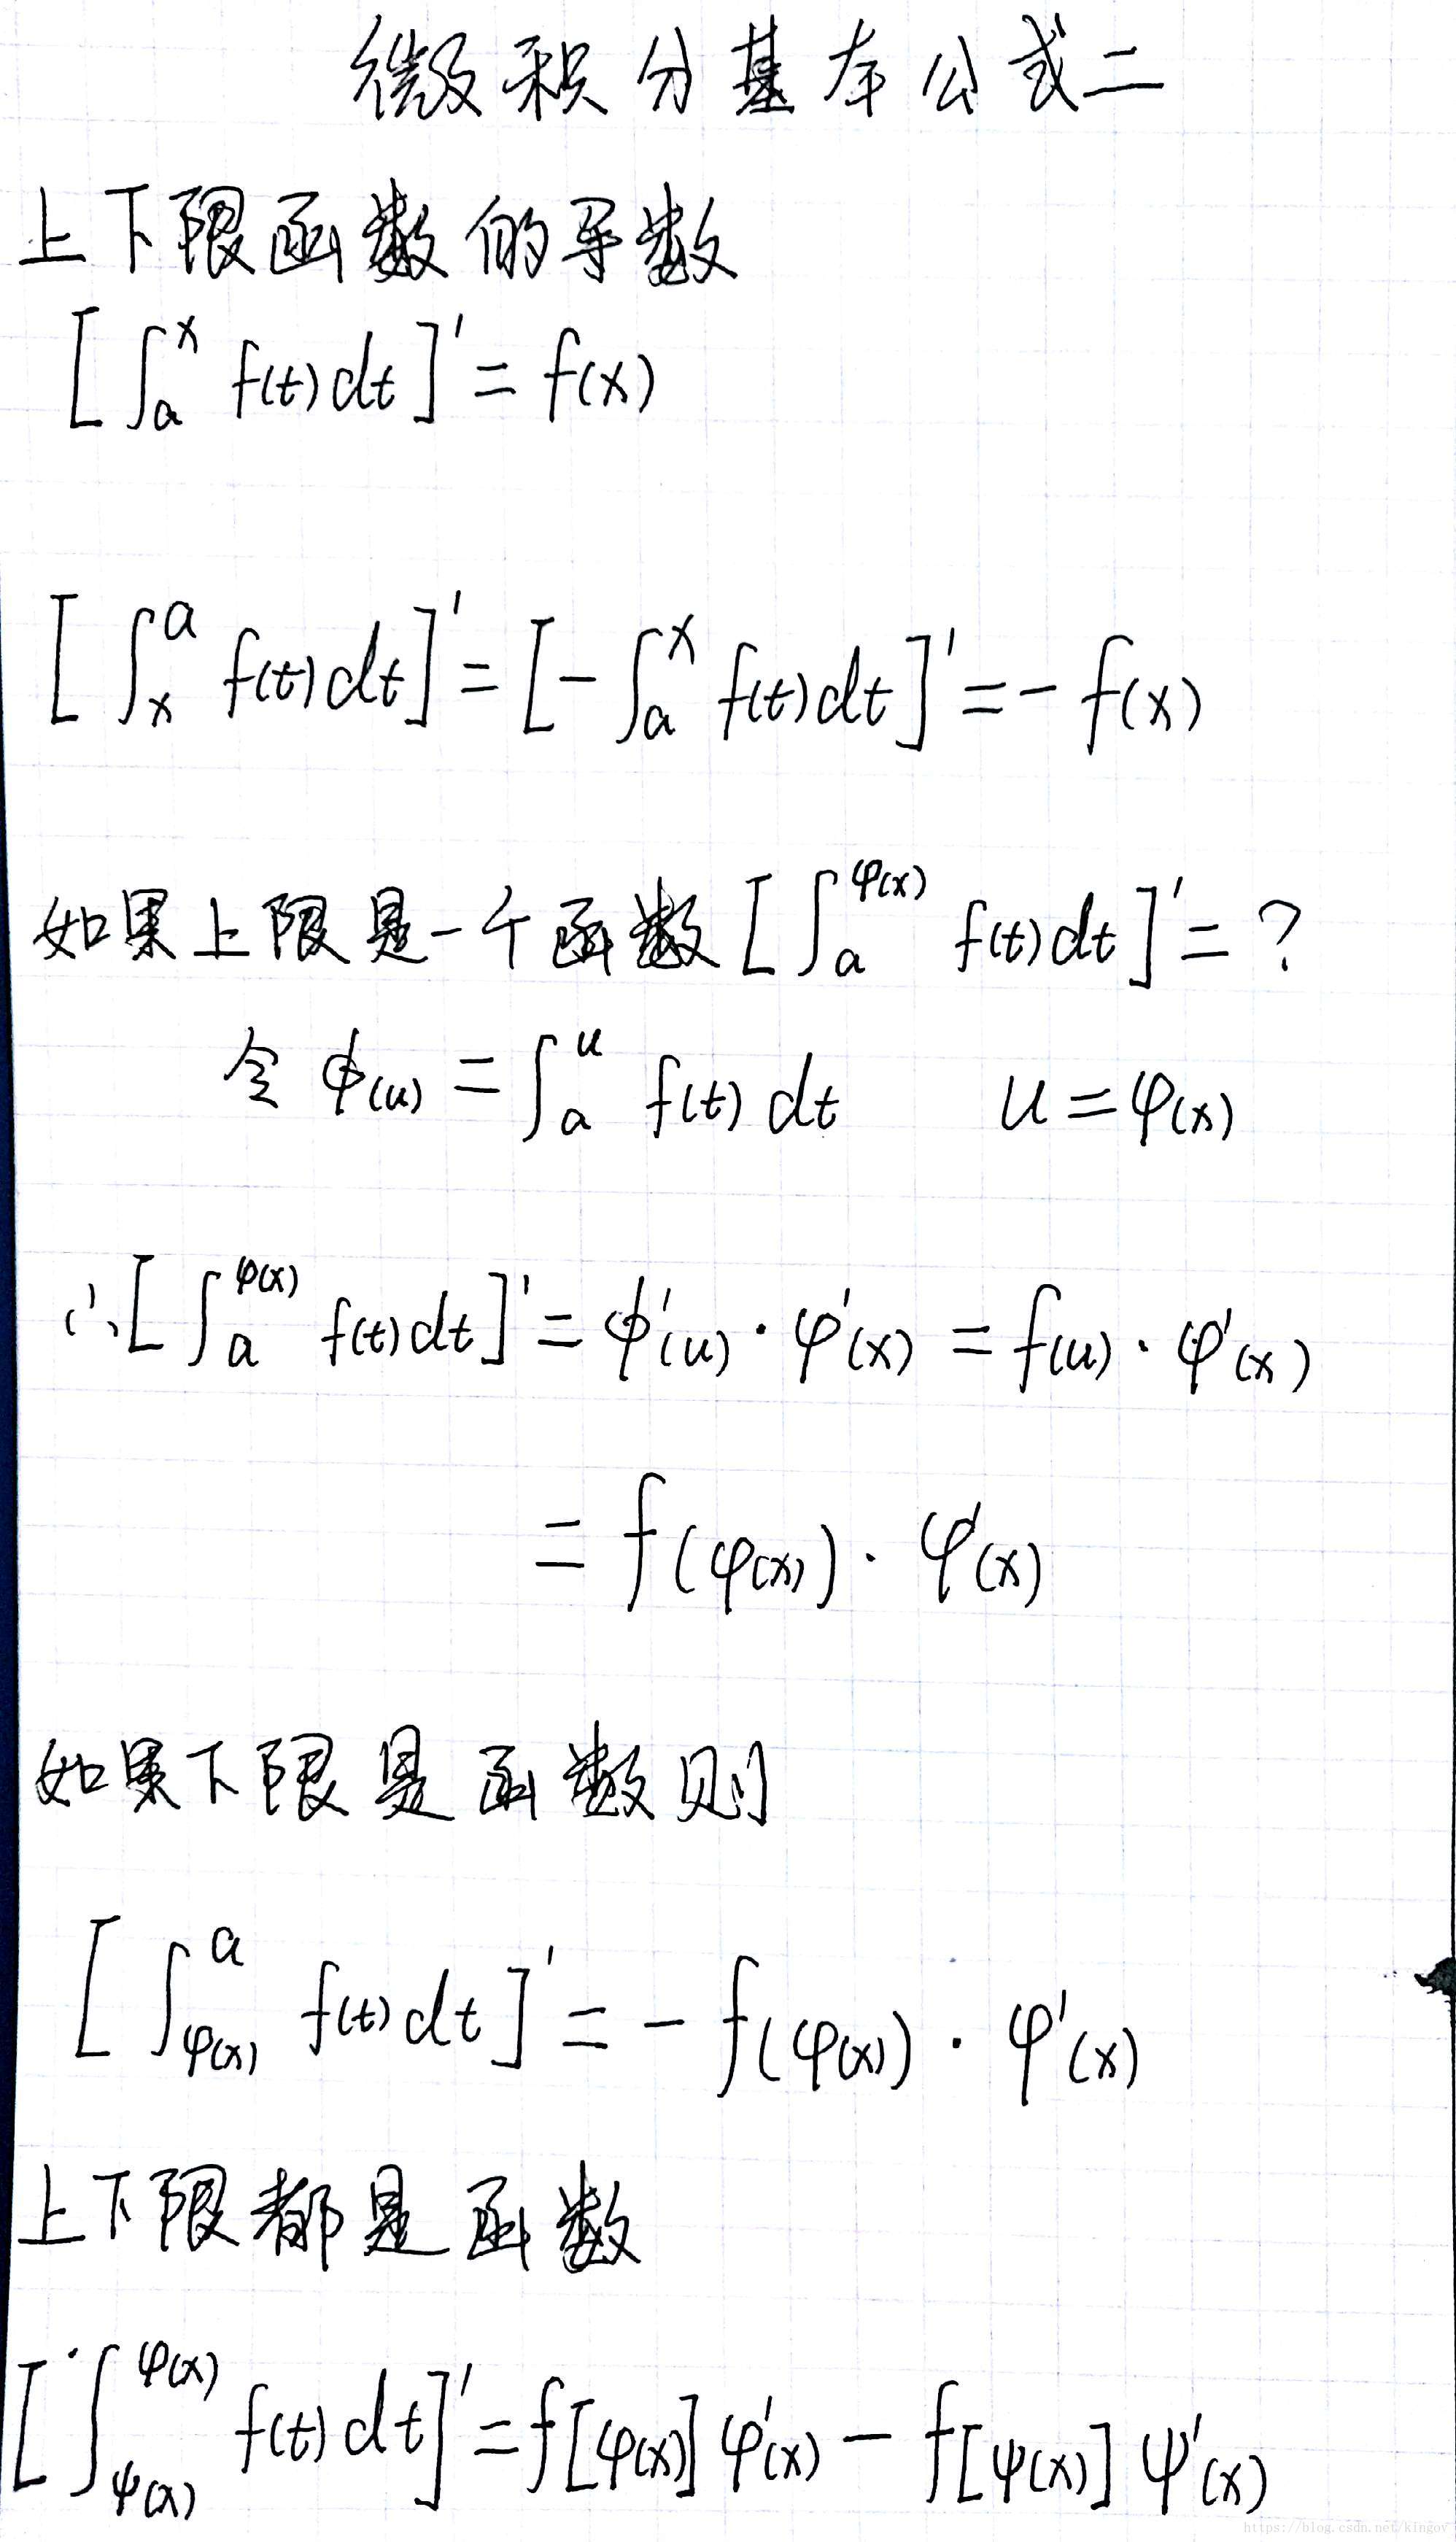 微积分基本公式二
上下限函数的导数
[∫ₐˣ f(t)dt]' = f(x)
[∫ₓᵃ f(t)dt]' = [-∫ₐˣ f(t)dt]' = -f(x)
如果上限是一个函数 [∫ₐ^φ(x) f(t)dt]' = ?
令 ϕ(u) = ∫ₐᵘ f(t) dt u = φ(x)
∴ [∫ₐ^φ(x) f(t)dt]' = ϕ'(u) · φ'(x) = f(u) · φ'(x)
= f(φ(x)) · φ'(x)
如果下限是函数则
[∫_φ(x)^a f(t)dt]' = -f(φ(x)) · φ'(x)
上下限都是函数
[∫_ψ(x)^φ(x) f(t)dt]' = f[φ(x)] φ'(x) - f[ψ(x)] ψ'(x)
https://blog.csdn.net/kingov